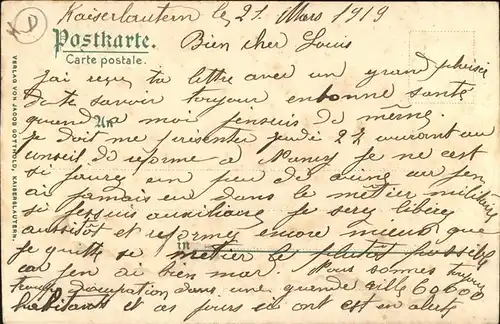 Kaiserlautern le 21 Mars 1919
Postkarte.
Carte postale.
Bien cher Louis
J'ai reçu ta lettre avec un grand plaisir
de te savoir toujour en bonne santé
quand a moi j'en suis de même.
Je doit me présenter jeudi 27 courant au
conseil de réforme a Nancy je ne est
si j'aurez un peu de
ai jamais eu dans le métier militaire
si je suis auxiliaire je serez libérez
aussitot et réformez encore mieux que
je quitte se métier le plutôt possible
car j'en ai bien mar. Nous sommes toujour
troupe d'occupation dans une grande ville 60 600
habitants et as jours ci ont est en alerte
An
in
VERLAG VON JACOB GOTTHOLD, KAISERSLAUTERN.
D